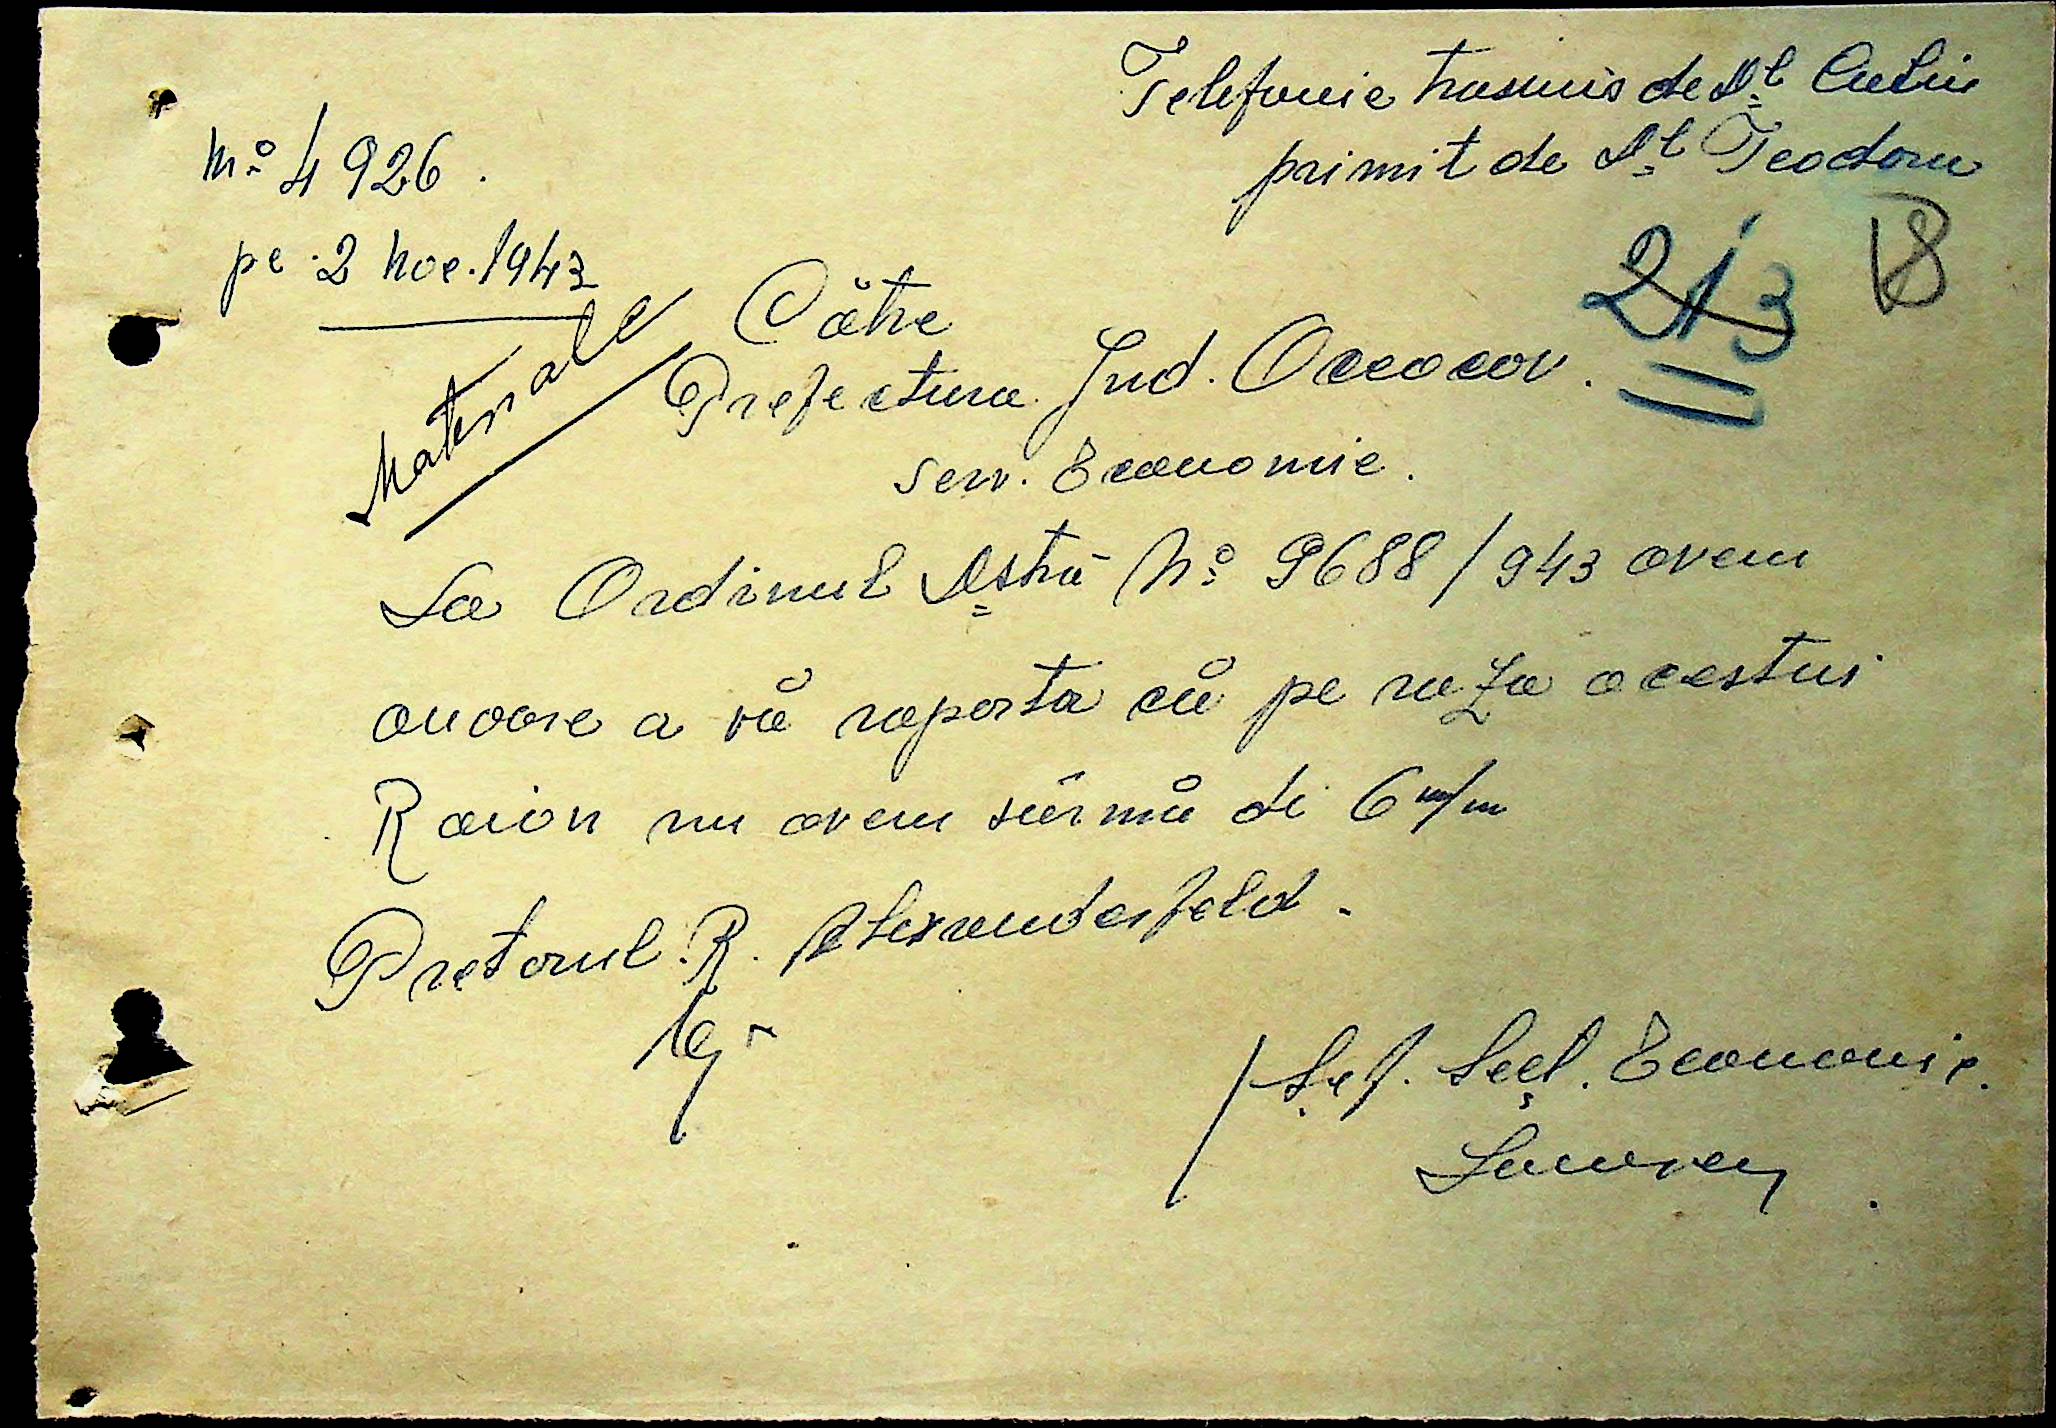 Telefonic trasmis de Dl
primit de Dl Teodoru
No 4926.
pe 2 Noe. 1943
213
Materiale
Către
Prefectura Jud. Oceacov.
Serv. Economic.
La Ordinul Dstră No 9688/943 avem
onoare a vă raporta că pe raza acestui
Raion nu avem sârmă de 6 m/m
Pretorul R. Alexanderfeld.
Șef. Secț. Economic.